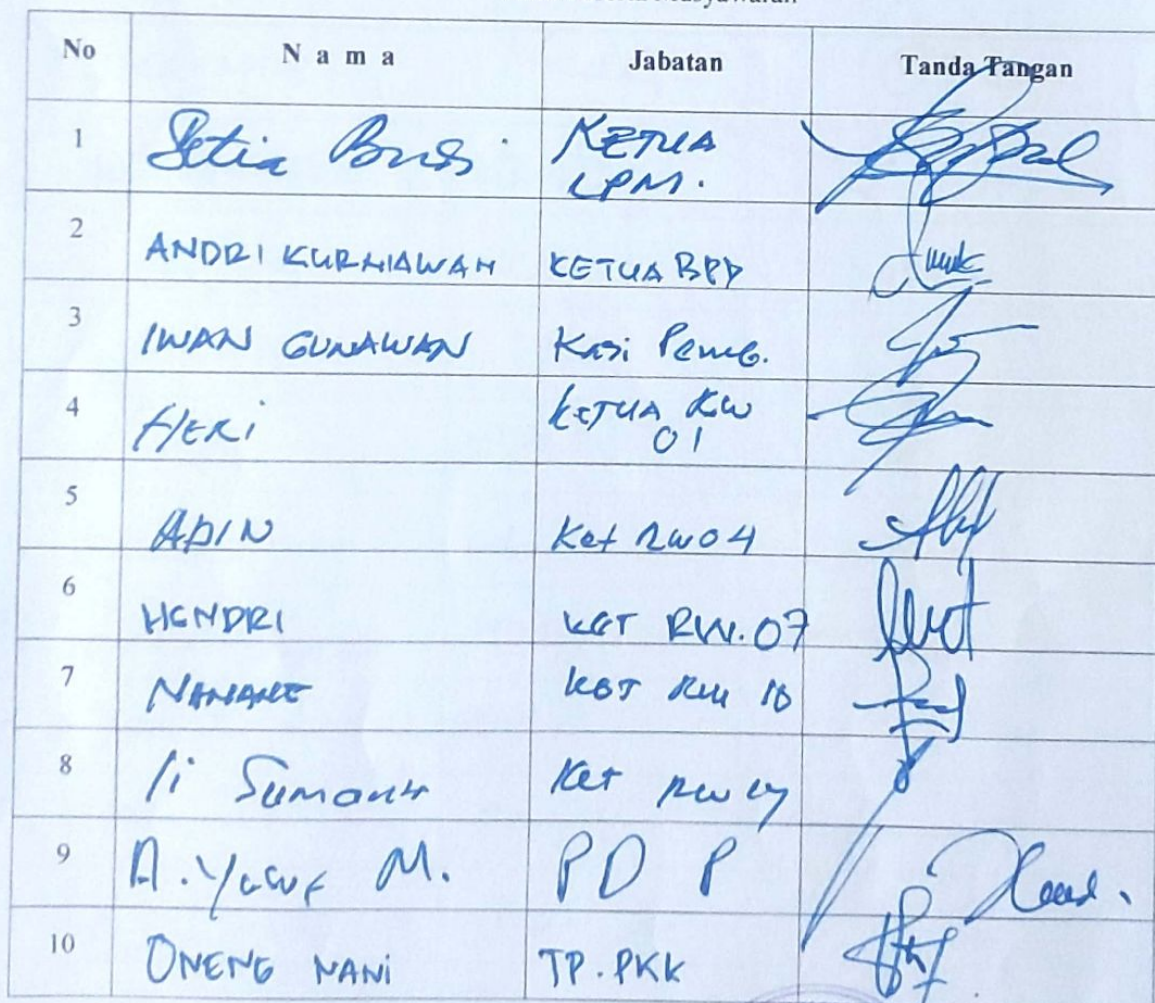 Musyawarah
No N a m a Jabatan Tanda Tangan
1 Setia KETUA
LPM.
2 ANDRI KURNIAWAN KETUA BPD
3 IWAN GUNAWAN Kasi Pemb.
4 HERI KETUA RW
01
5 ADIN Ket RW 04
6 HENDRI KET RW. 07
7 NANANG KET RW 10
8 Ket RW
9 A. Yusuf M. P D P
10 ONENG NANI TP. PKK